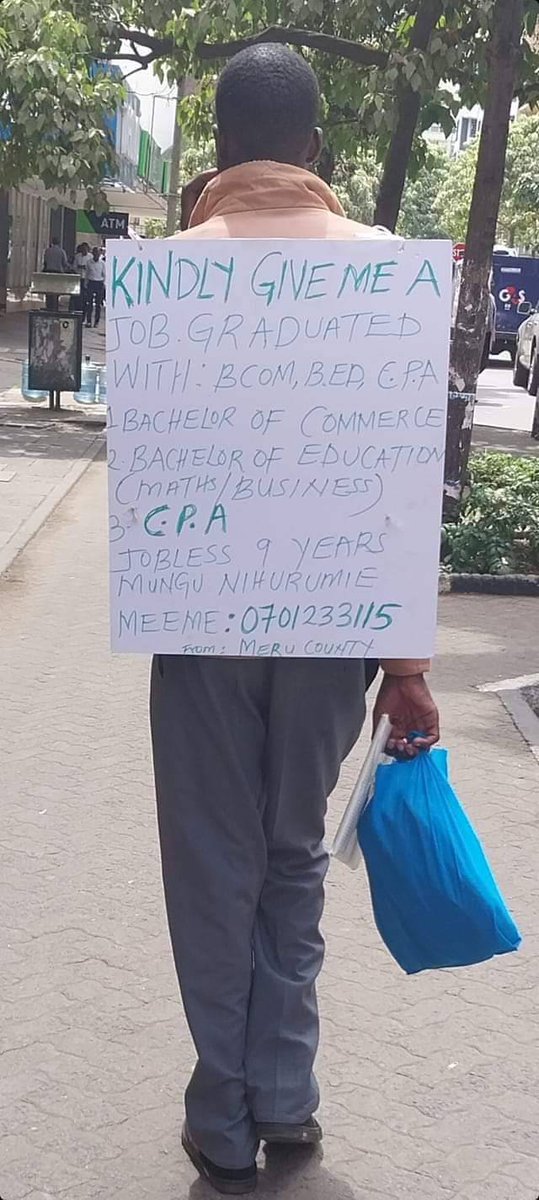 ATM
KINDLY GIVE ME A
JOB. GRADUATED
WITH: BCOM, B.ED, C.P.A
1 BACHELOR OF COMMERCE
2. BACHELOR OF EDUCATION
(MATHS/BUSINESS)
3. C.P.A
JOBLESS 9 YEARS
MUNGU NIHURUMIE
MEEME: 0701233115
FROM: MERU COUNTY
G4S